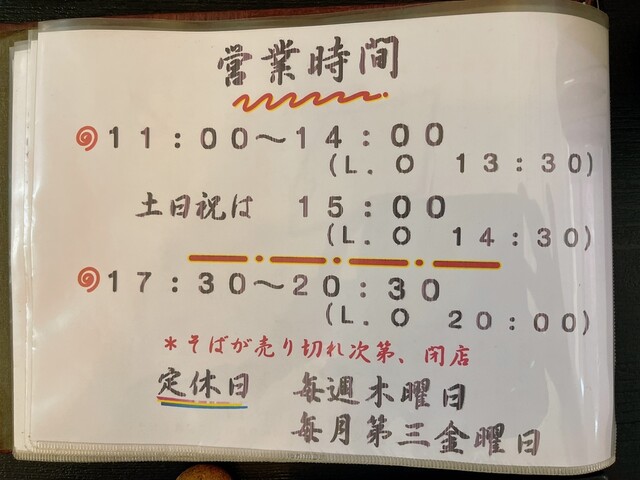 営業時間
11:00～14:00
(L.O 13:30)
土日祝は 15:00
(L.O 14:30)
17:30～20:30
(L.O 20:00)
*そばが売り切れ次第、閉店
定休日 毎週木曜日
毎月第三金曜日